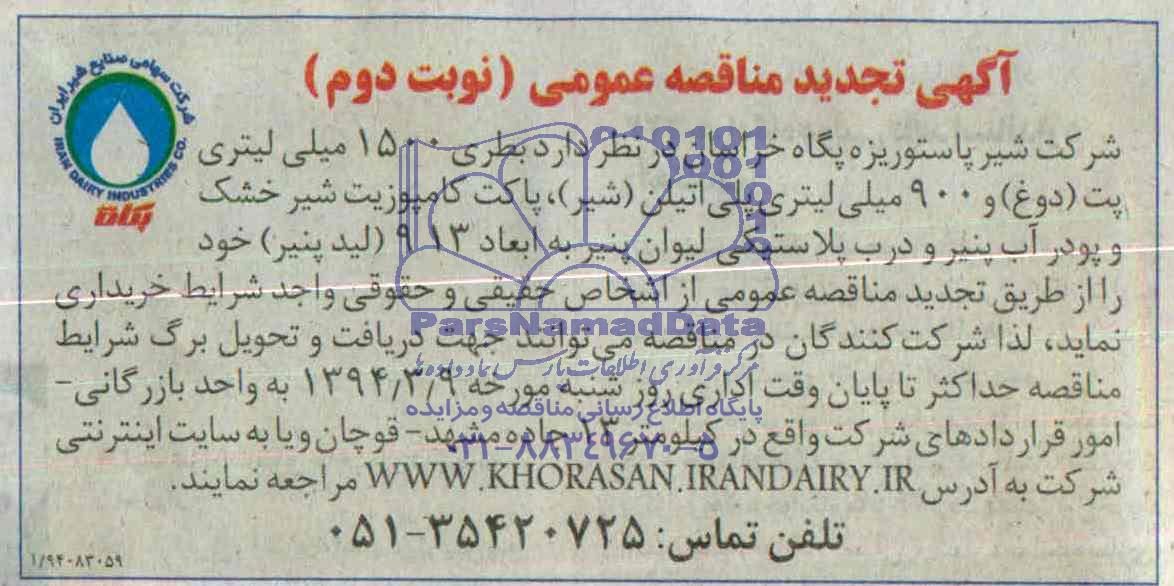 آگهی تجدید مناقصه عمومی (نوبت دوم)
شرکت سهامی صنایع شیر ایران
IRAN DAIRY INDUSTRIES CO.
پگاه
شرکت شیر پاستوریزه پگاه خراسان در نظر دارد بطری ۱۵۰۰ میلی لیتری
پت (دوغ) و ۹۰۰ میلی لیتری پلی اتیلن (شیر)، پاکت کامپوزیت شیر خشک
و پودر آب پنیر و درب پلاستیکی لیوان پنیر به ابعاد ۹.۱۳ (لید پنیر) خود
را از طریق تجدید مناقصه عمومی از اشخاص حقیقی و حقوقی واجد شرایط خریداری
نماید، لذا شرکت کنندگان در مناقصه می توانند جهت دریافت و تحویل برگ شرایط
مناقصه حداکثر تا پایان وقت اداری روز شنبه مورخه ۱۳۹۴/۳/۹ به واحد بازرگانی -
امور قراردادهای شرکت واقع در کیلومتر ۱۳ جاده مشهد - قوچان و یا به سایت اینترنتی
شرکت به آدرس WWW.KHORASAN.IRANDAIRY.IR مراجعه نمایند.
تلفن تماس: ۳۵۴۲۰۷۲۵-۰۵۱
۱/۹۴۰۸۳۰۵۹
ParsNamadData
مرکز فرآوری اطلاعات پارس نماد داده ها
پایگاه اطلاع رسانی مناقصه و مزایده
۰۲۱-۸۸۳۴۹۶۷۰-۵